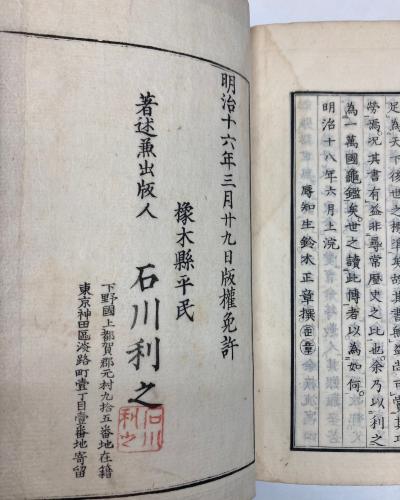 足為天下後世之標準
勞焉況其書有益非尋常歷史之比也。余乃以利之
為一萬國龜鑑矣。世之讀此傳者以為如何。
明治十八年六月上浣
辱知生鈴木正章撰
明治十六年三月廿九日版權免許
橡木縣平民
著述兼出版人 石川利之
石川利之
下野國上都賀郡元村九拾五番地在籍
東京神田區淡路町壹丁目壹番地寄留